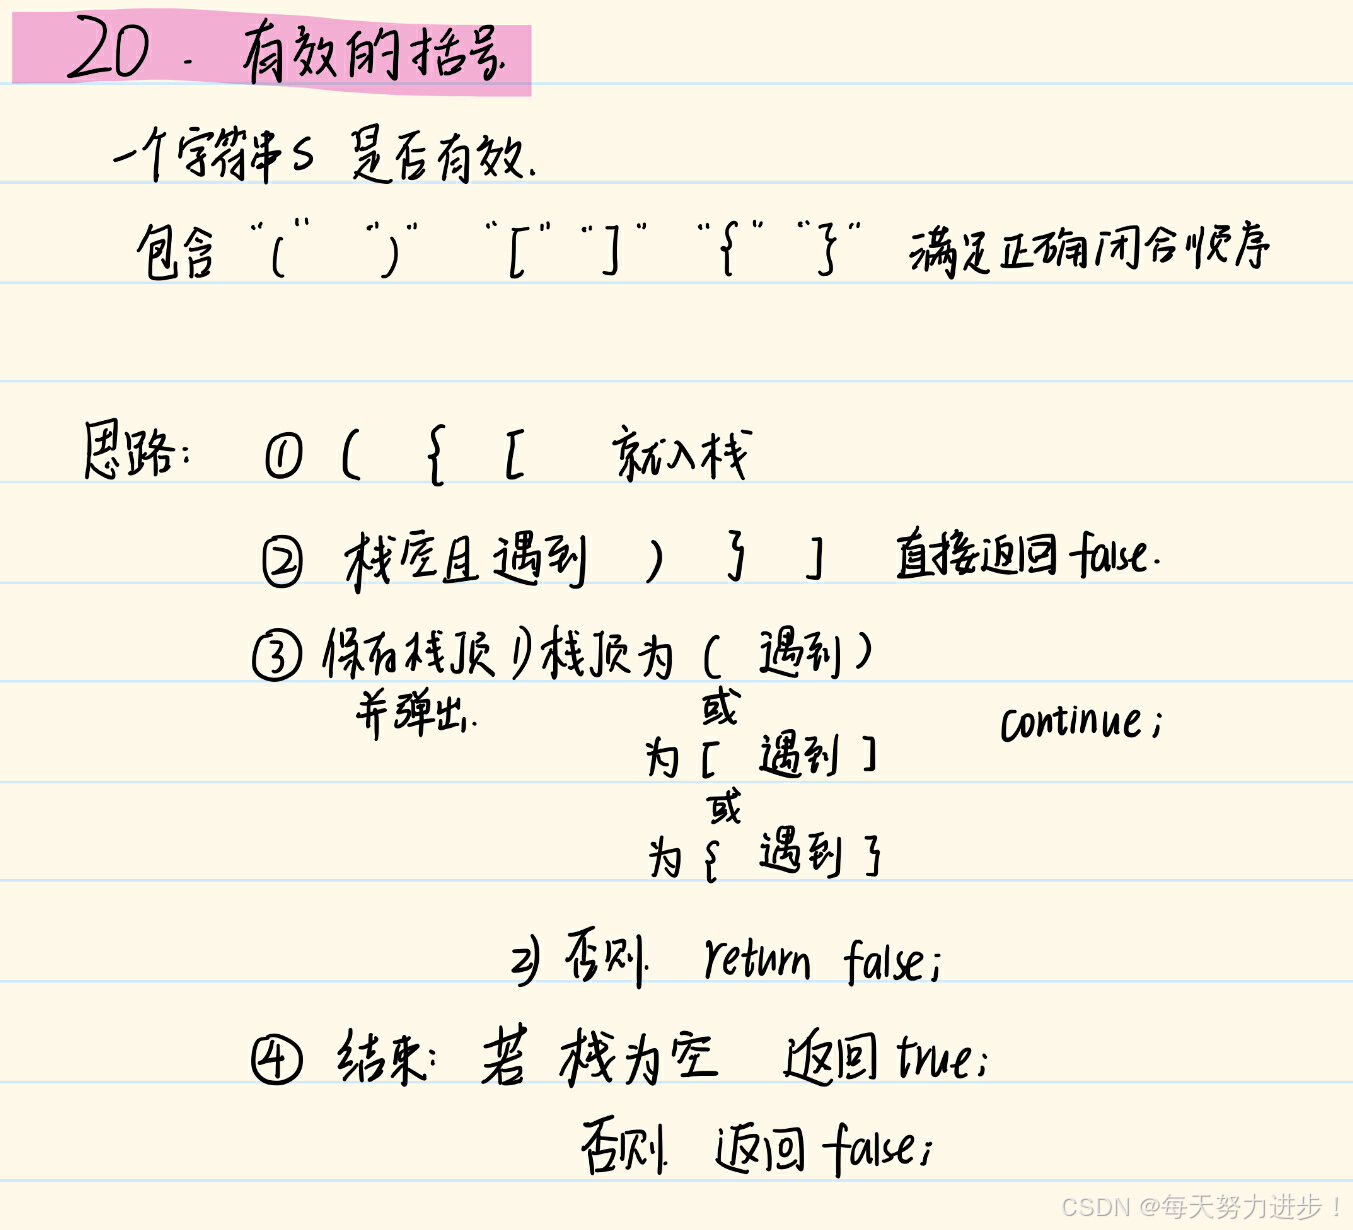 20. 有效的括号.
一个字符串s 是否有效.
包含 "(" ")" "[" "]" "{" "}" 满足正确闭合顺序
思路: ① ( { [ 就入栈
② 栈空且遇到 ) } ] 直接返回false.
③ 保存栈顶 1) 栈顶为 ( 遇到 )
并弹出. 或 continue;
为 [ 遇到 ]
或
为 { 遇到 }
2) 否则. return false;
④ 结束: 若 栈为空 返回 true;
否则. 返回 false;
CSDN @每天努力进步！